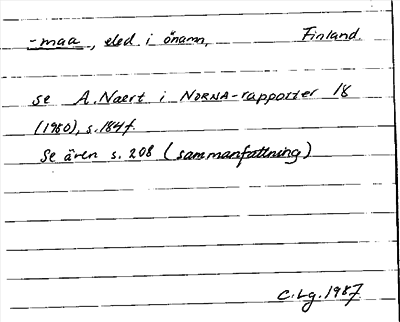 -maa, eled. i önamn, Finland.
se A. Naert i NORNA-rapporter 18
(1980), s. 184f.
Se även s. 208 (sammanfattning)
C. Lg. 1987.